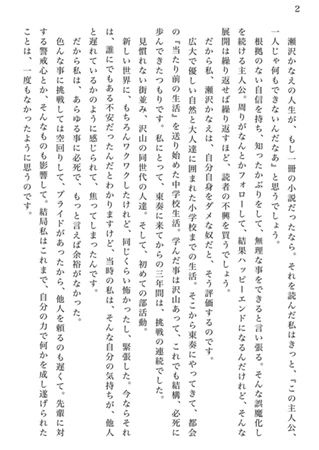 2
瀬沢かなえの人生が、もし一冊の小説だったなら。それを読んだ私はきっと、『この主人公、
一人じゃ何もできないんだなあ』と思うでしょう。
根拠のない自信を持ち、知ったかぶりをして、無理な事をできると言い張る。そんな誤魔化し
を続ける主人公。周りがなんとかフォローして、結果ハッピーエンドになるんだけれど、そんな
展開は繰り返せば繰り返すほど、読者の不興を買うでしょう。
だから私、瀬沢かなえは、自分自身をダメな奴だと、そう評価するのです。
広大で優しい自然と大人達に囲まれた小学校までの生活。そこから東奏にやってきて、都会
の『当たり前の生活』を送り始めた中学校生活。学んだ事は沢山あって、これでも結構、必死に
歩んできたつもりです。私にとって、東奏に来てからの三年間は、挑戦の連続でした。
見慣れない街並み、沢山の同世代の人達。そして、初めての部活動。
新しい世界に、もちろんワクワクしたけれど、同じくらい怖かったし、緊張した。今ならそれ
は、誰にでもある不安だったんだとわかりますけど、当時の私は、そんな自分の気持ちが、他人
と遅れているかのように感じられて、焦ってしまったんです。
だから私は、あらゆる事に必死で、もっと言えば余裕がなかった。
色んな事に挑戦しては空回りして、プライドがあったから、他人を頼るのも遅くて。先輩に対
する警戒心とか、そんなものも影響して。結局私はこれまで、自分の力で何かを成し遂げられた
ことは、一度もなかったように思うのです。